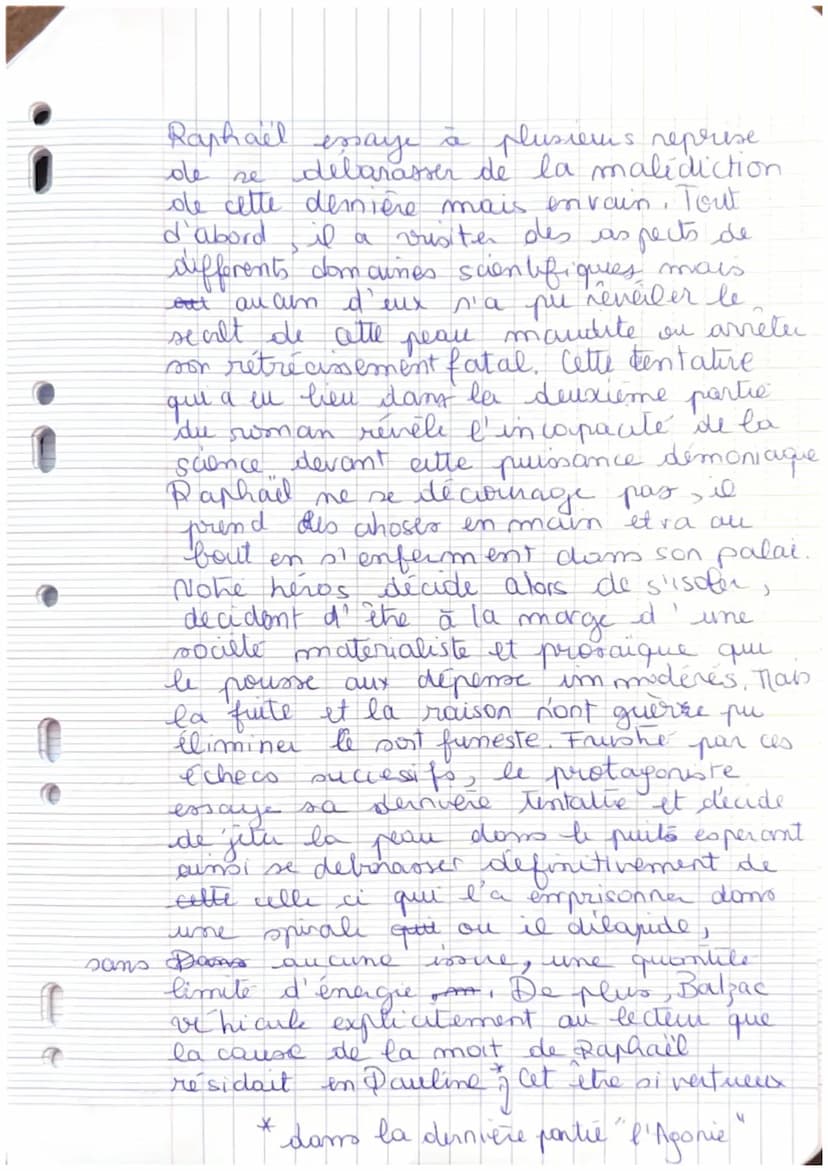 Raphaël essaye à plusieurs reprise
de se débarasser de la malédiction
de cette dernière mais envain. Tout
d'abord, il a visiter des aspects de
différents domaines scientifiques mais
aucun d'eux n'a pu révéler le
secret de cette peau maudite ou arrêter
son rétrécissement fatal. Cette tentative
qui a eu lieu dans la deuxième partie
du roman révèle l'incapacité de la
science devant cette puissance démoniaque
Raphaël ne se décourage pas, il
prend des choses en main et va au
bout en s'enferment dans son palai.
Notre héros décide alors de s'isoler,
decidant d'être à la marge d'une
société materialiste et prosaïque qui
le pousse aux dépense immodérés. Mais
la fuite et la raison n'ont guère pu
éliminer le sort funeste. Frustré par ces
échecs successifs, le protagoniste
essaye sa dernière tentative et décide
de jeter la peau dans le puits esperant
ainsi se debarasser définitivement de
cette celle ci qui l'a emprisonner dans
une spirale ou il dilapide,
sans aucune issue, une quantité
limité d'énergie. De plus, Balzac
véhicule explicitement au lecteur que
la cause de la mort de Raphaël
résidait en Pauline * ; Cet être si vertueux
* dans la dernière partie "l'Agonie"